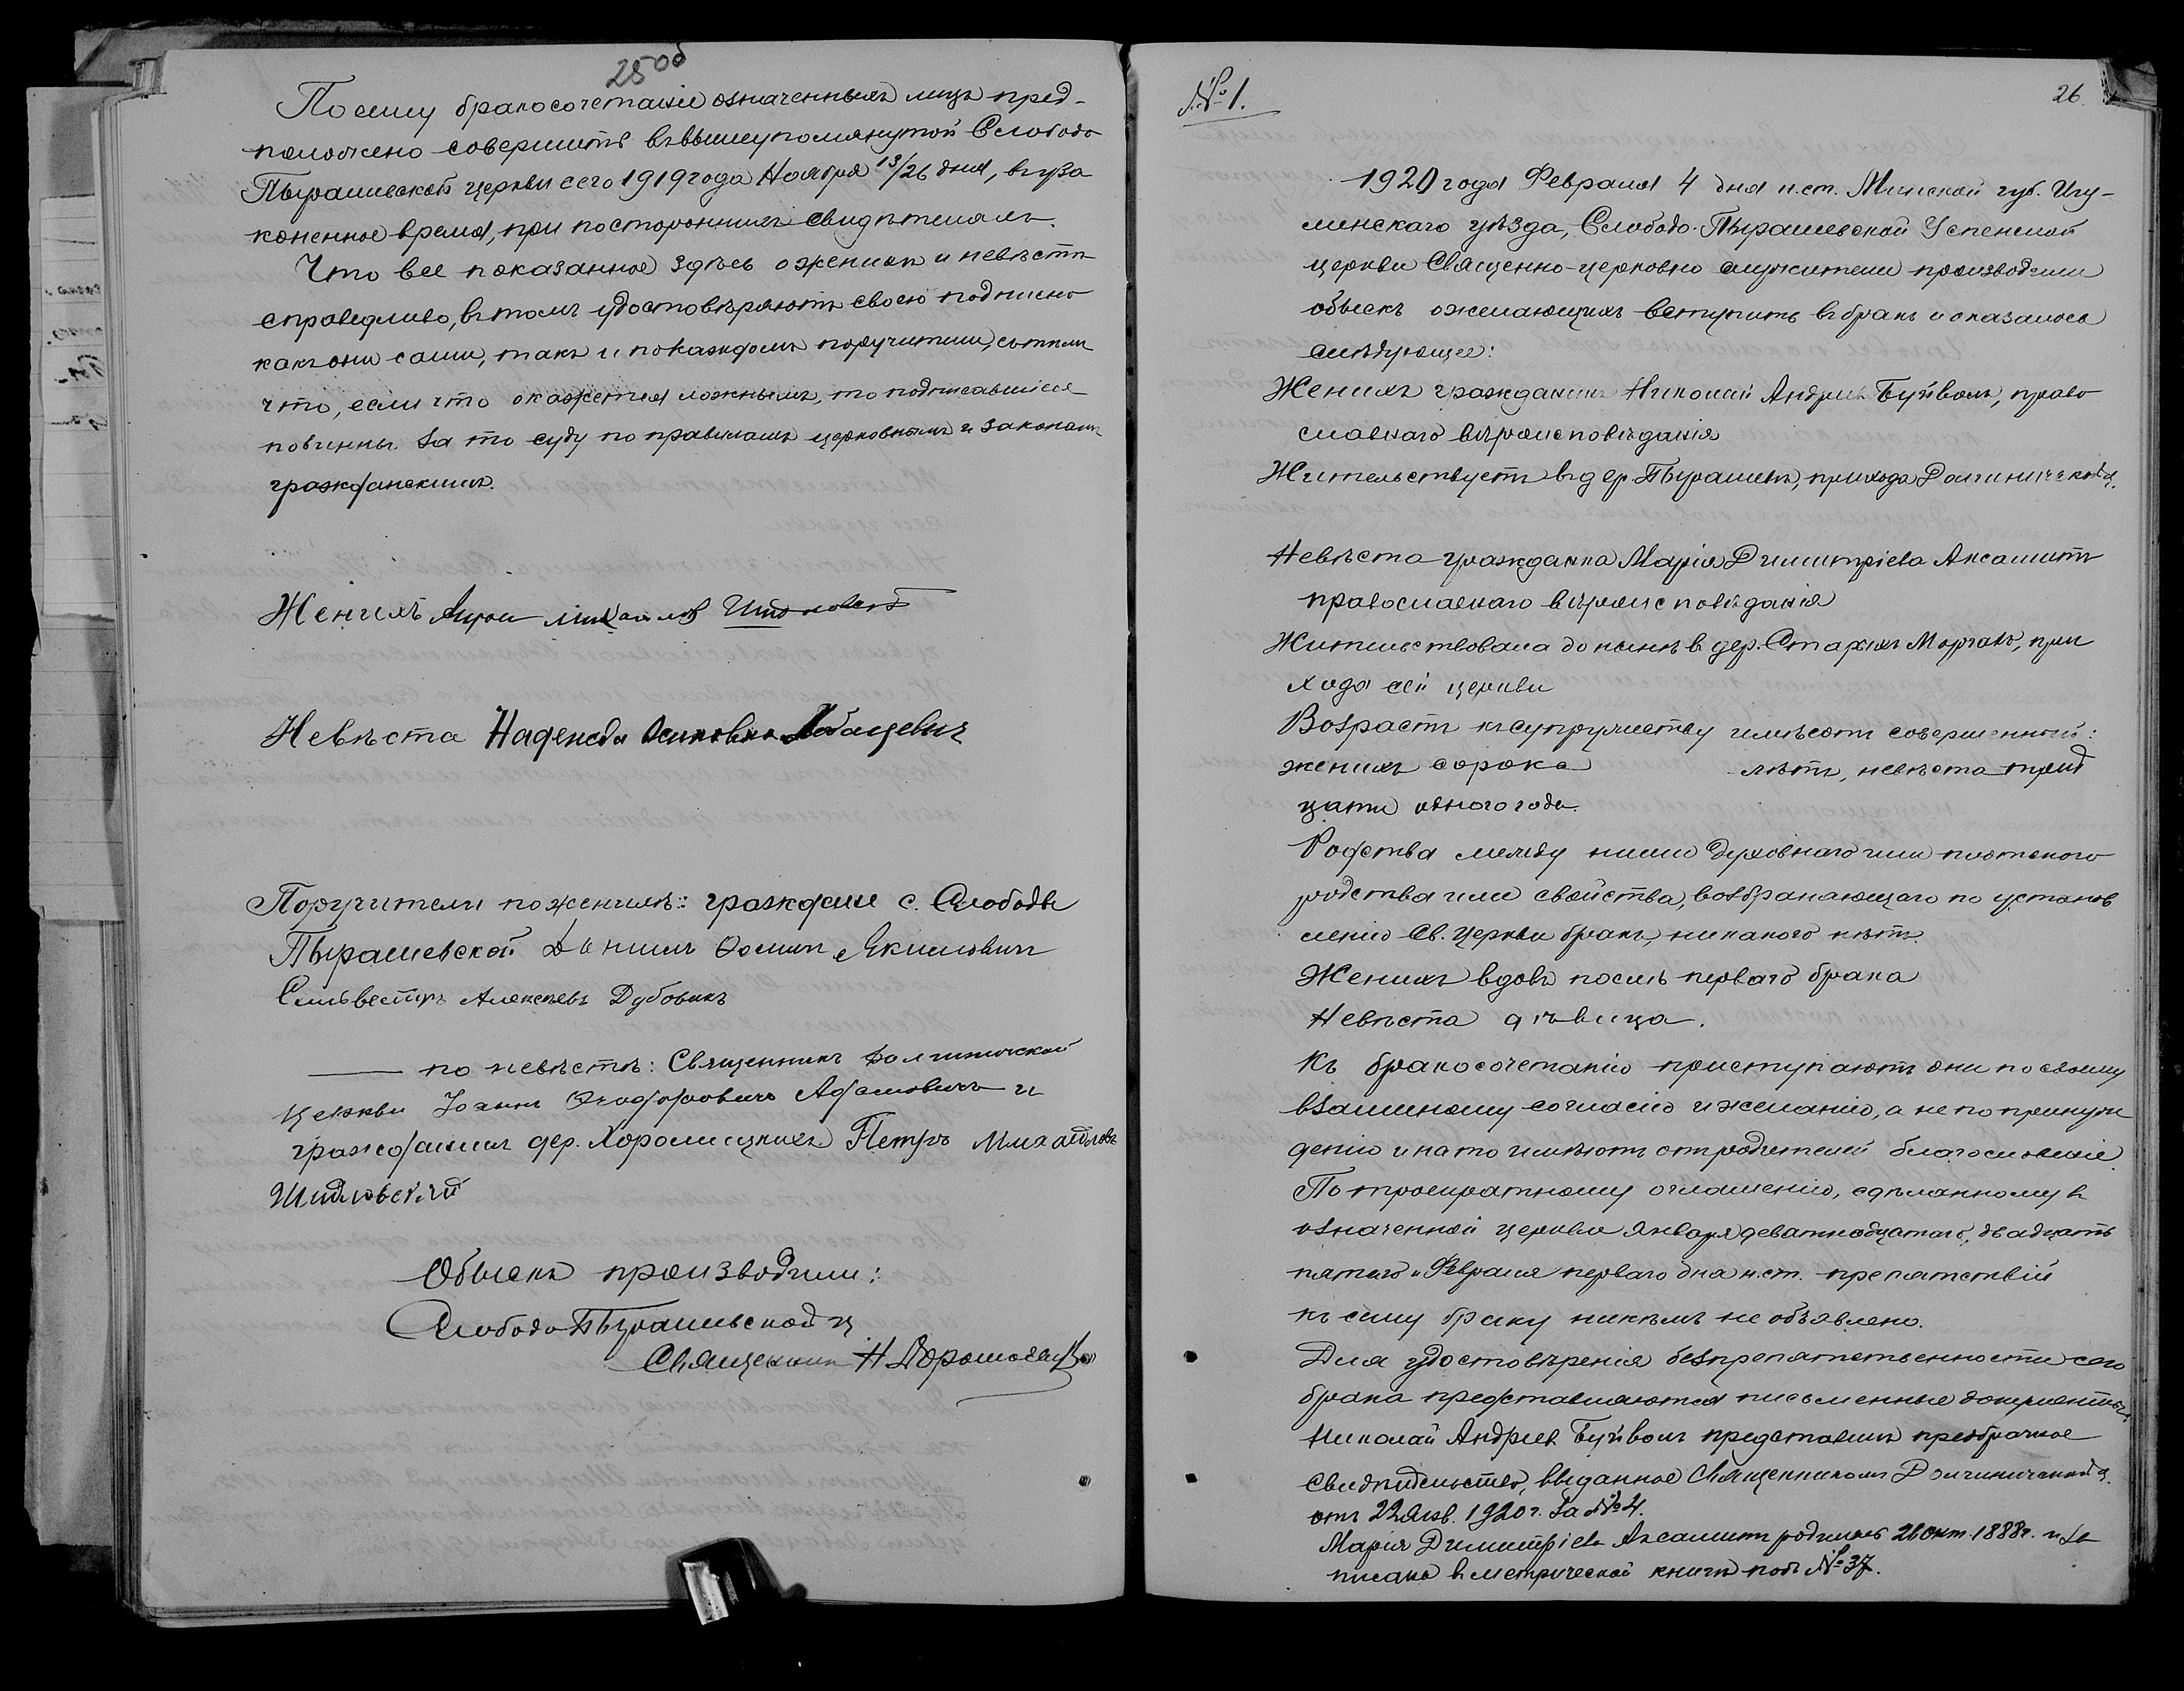 25об
По сему бракосочетаніе означенныхъ лицъ пред-
положено совершить въ вышеупомянутой Слободо
Пырашевской церкви сего 1919 года Ноября 13/26 дня, въ уза
коненное время, при постороннихъ свидѣтеляхъ.
Что все показанное здѣсь о женихѣ и невѣстѣ
справедливо, въ томъ удостовѣряютъ своею подписью
какъ они сами, такъ и по каждомъ поручители, съ тѣмъ
что, если что окажется ложнымъ, то подписавшіеся
повинны за то суду по правиламъ церковнымъ и законамъ
гражданскимъ.
Женихъ Михаиловъ
Невѣста Надежда Осиповна
Поручители по женихѣ: граждане с. Слободы
Пырашевской Осипъ Якимовичъ
Сильвестръ Алексѣевъ Дубовикъ
по невѣстѣ: Священникъ Долгиничской
церкви Іоаннъ Ѳеодоровичъ Адамовичъ и
гражданинъ дер. Хоромицкихъ Петръ Михайловъ
Шидловскій
Обыскъ производили:
Слободо Пырашевской ц
Священникъ Н
№ 1.
26
1920 года Февраля 4 дня н.ст. Минской губ. Игу-
менскаго уѣзда, Слободо-Пырашевской Успенской
церкви Священно-церковно служители производили
обыскъ о желающихъ вступить въ бракъ и оказалось
слѣдующее:
Женихъ гражданинъ Николай Андреевъ Буйволъ, право
славнаго вѣроисповѣданія
Жительствуетъ въ дер Пырашевѣ, прихода Долгиничской ц.
Невѣста гражданка Марія Димитріева Аксамитъ
православнаго вѣроисповѣданія
Жительствовала до нынѣ въ дер. Старыхъ Моргахъ, при
хода сей церкви
Возрастъ къ супружеству имѣютъ совершенный:
женихъ сорока лѣтъ, невѣста трид
цати одного года.
Родства между ними духовнаго или плотскаго
родства или свойства, возбраняющаго по установ
ленію Св. Церкви бракъ, никакого нѣтъ.
Женихъ вдовъ послѣ перваго брака
Невѣста дѣвица.
Къ бракосочетанію приступаютъ они по своему
взаимному согласію и желанію, а не по принуж
денію и на то имѣютъ отъ родителей благословеніе.
По троекратному оглашенію, сдѣланному въ
означенной церкви Января девятнадцатаго, двадцать
пятаго и Февраля перваго дня н.ст. препятствій
къ сему браку никѣмъ не объявлено.
Для удостовѣренія безпрепятственности сего
брака представляются письменные документы:
Николай Андреевъ Буйволъ представилъ предбрачное
свидѣтельство, выданное Священникомъ Долгиничской ц.
отъ 22 Янв. 1920 г. за № 4.
Марія Димитріева Аксамитъ родилась 26 окт. 1888 г. и за
писана въ метрической книгѣ подъ № 37.